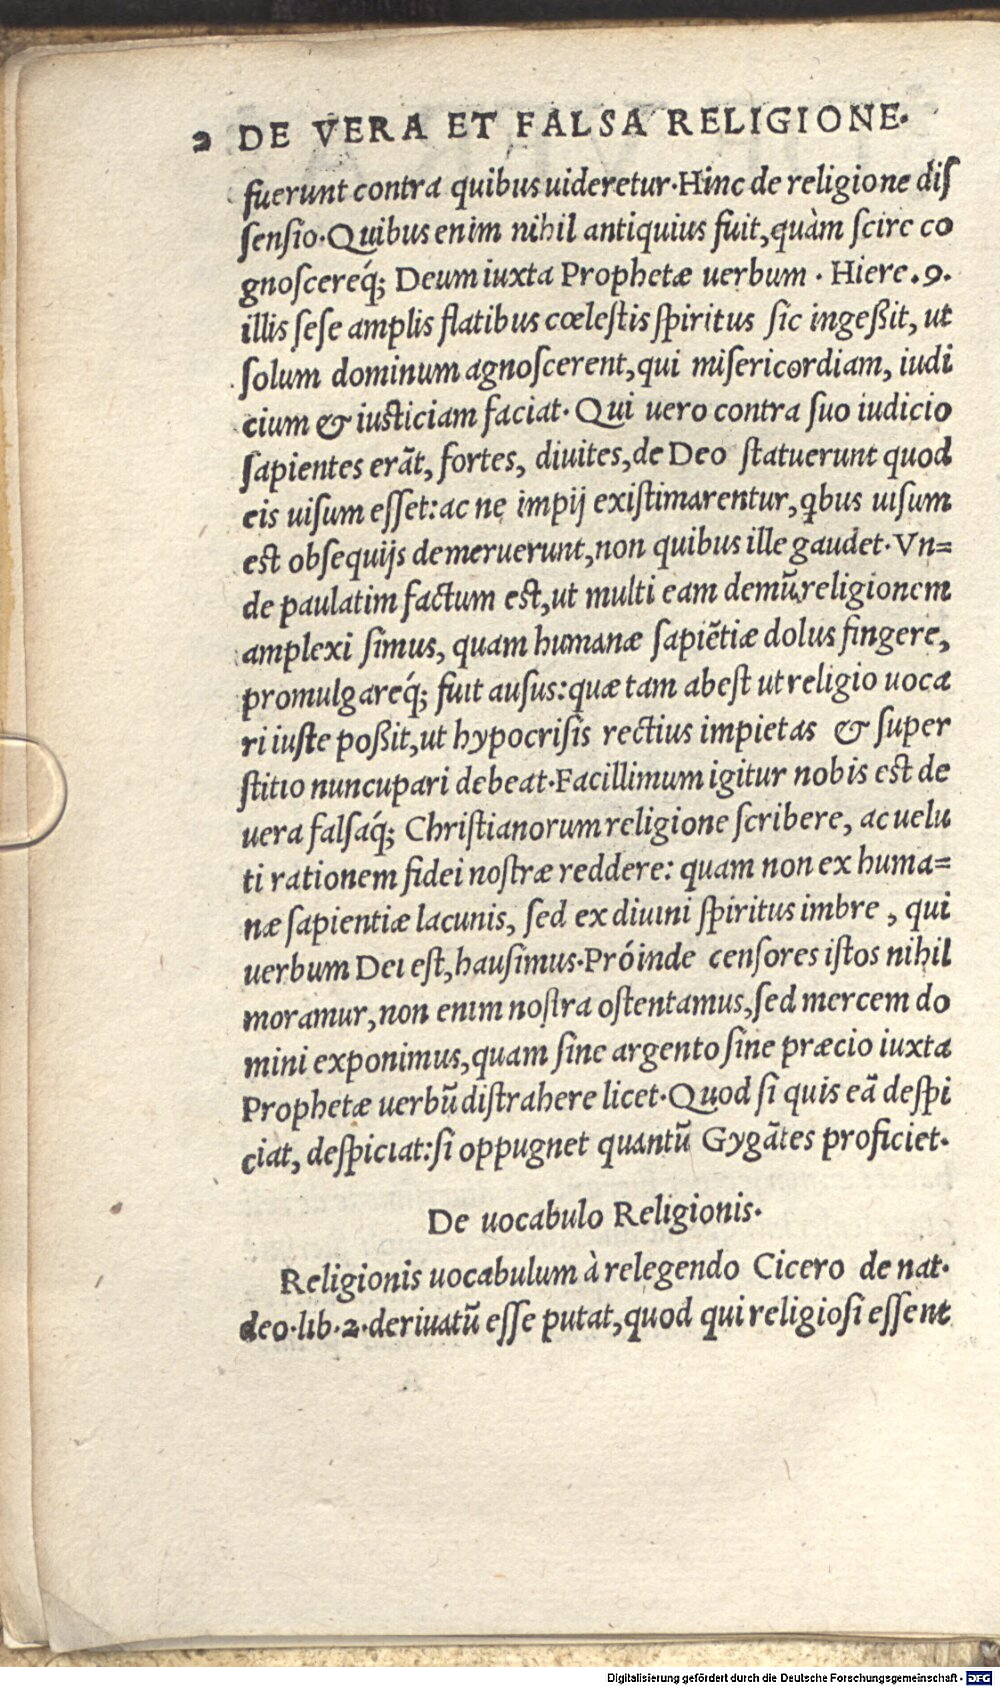 2 DE VERA ET FALSA RELIGIONE.
fuerunt contra quibus uideretur. Hinc de religione diſ
ſenſio. Quibus enim nihil antiquius fuit, quàm ſcire co
gnoſcereq́; Deum iuxta Prophetæ uerbum . Hiere .9.
illis ſeſe amplis flatibus cœleſtis ſpiritus ſic ingeßit, ut
ſolum dominum agnoſcerent, qui miſericordiam, iudi
cium & iusticiam faciat. Qui uero contra ſuo iudicio
ſapientes erãt, fortes, diuites, de Deo ſtatuerunt quod
eis uiſum eſſet: ac ne impij exiſtimarentur, qbus uiſum
est obſequijs demeruerunt, non quibus ille gaudet. Vn=
de paulatim factum est, ut multi eam demũ religionem
amplexi ſimus, quam humanæ ſapiẽtiæ dolus fingere,
promulgareq́; fuit auſus: quæ tam abeſt ut religio uoca
ri iuſte poßit, ut hypocriſis rectius impietas & ſuper
ſtitio nuncupari debeat. Facillimum igitur nobis est de
uera falſaq́; Chriſtianorum religione ſcribere, ac uelu
ti rationem fidei noſtræ reddere: quam non ex huma=
næ ſapientiæ lacunis, ſed ex diuini ſpiritus imbre , qui
uerbum Dei eſt, hauſimus. Próinde cenſores iſtos nihil
moramur, non enim noſtra oſtentamus, ſed mercem do
mini exponimus, quam ſine argento ſine præcio iuxta
Prophetæ uerbũ diſtrahere licet. Quod ſi quis eã deſpi
ciat, deſpiciat: ſi oppugnet quantũ Gygãtes proficiet.
De uocabulo Religionis.
Religionis uocabulum à relegendo Cicero de nat.
deo. lib. 2. deriuatũ eſſe putat, quod qui religioſi eſſent
Digitalisierung gefördert durch die Deutsche Forschungsgemeinschaft - DFG